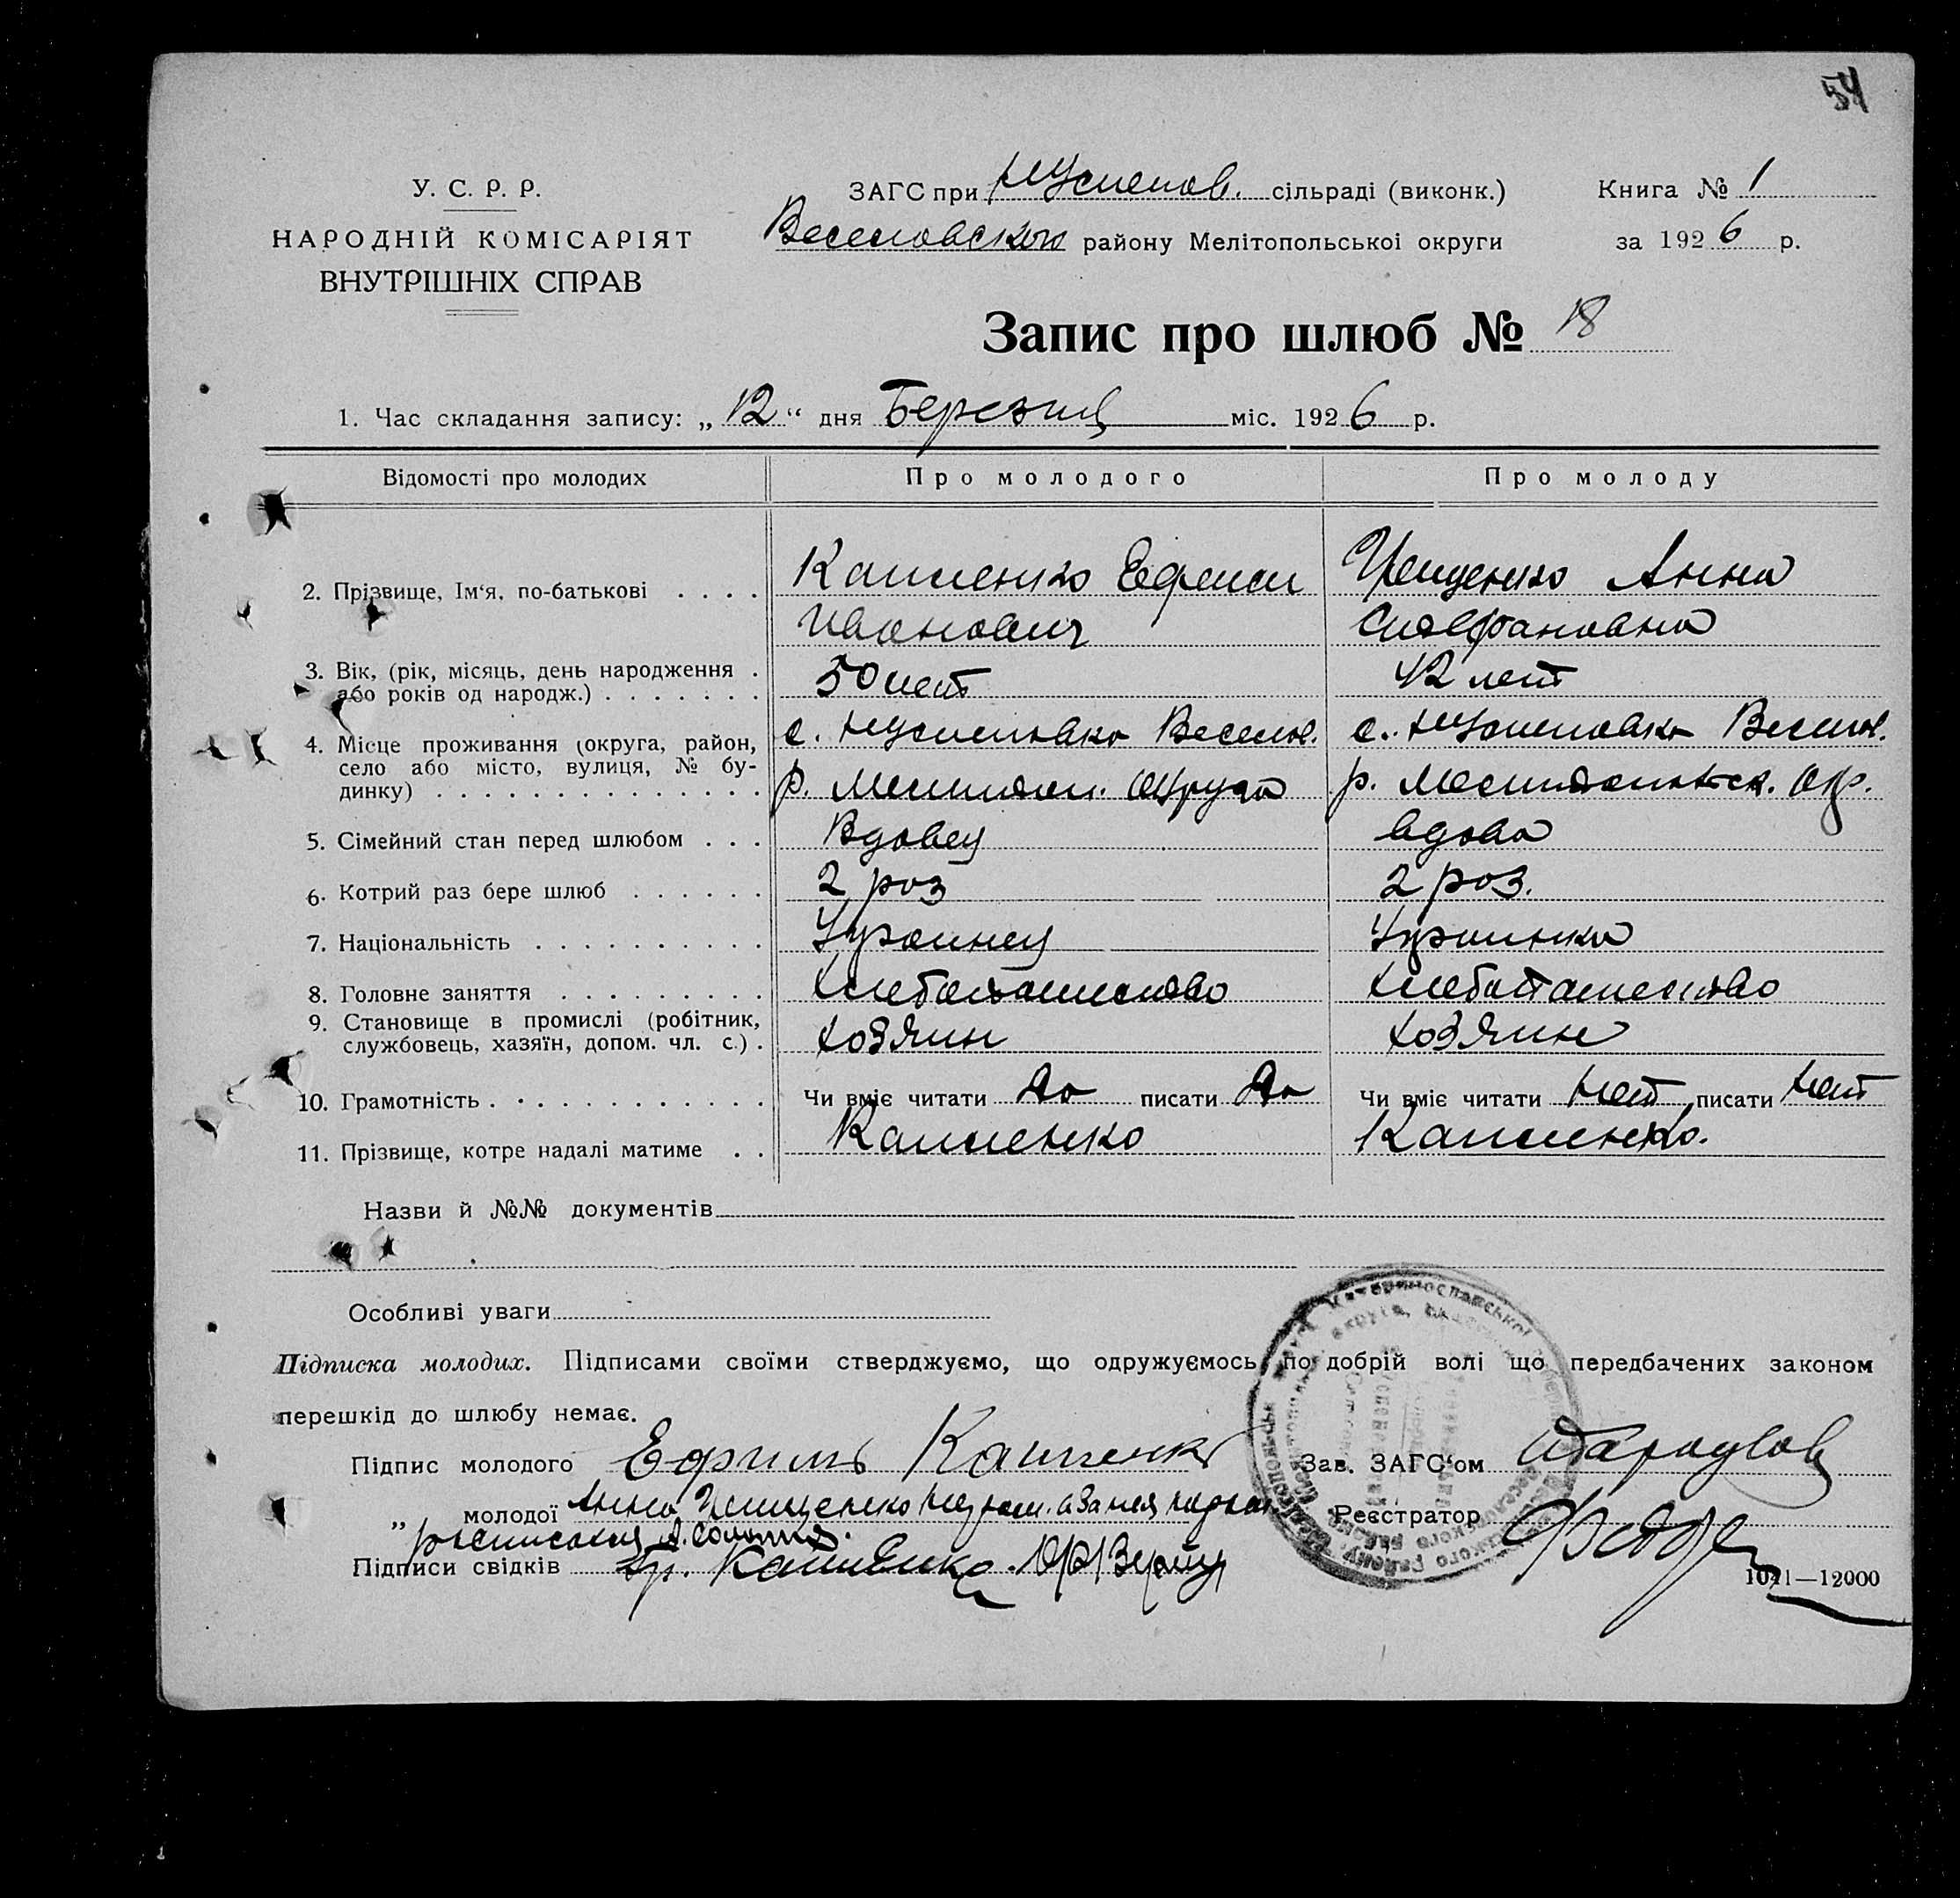 54
У. С. Р. Р.
НАРОДНІЙ КОМІСАРІЯТ
ВНУТРІШНІХ СПРАВ
ЗАГС при НУспенов. сільраді (виконк.)
Веселовского району Мелітопольськоі округи
Книга № 1
за 1926 р.
Запис про шлюб № 18
1. Час складання запису: „12“ дня Березня міс. 1926 р.
Відомості про молодих Про молодого Про молоду
2. Прізвище, Ім‘я, по-батькові . . . .
Ефим
Иванович
Анна
3. Вік, (рік, місяць, день народження .
або років од народж.) . . . . . . .
50 лет
42 лет
4. Місце проживання (округа, район,
село або місто, вулиця, № бу-
динку) . . . . . . . . . . . . . .
с. НУспеновка Веселов.
р. Мелитоп. Округа
с. НУспеновка Веселов.
р. Мелитопольск. Окр.
5. Сімейний стан перед шлюбом . . .
Вдовец
вдова
6. Котрий раз бере шлюб . . . . . .
2 раз
2 раз.
7. Національність . . . . . . . . . .
Украинец
Украинка
8. Головне заняття . . . . . . . . .
Хлебопашество
Хлебопашество
9. Становище в промислі (робітник,
службовець, хазяїн, допом. чл. с.) .
Хозяин
Хозяин
10. Грамотність . . . . . . . . . . . .
Чи вміє читати Да писати Да
Чи вміє читати Нет писати Нет
11. Прізвище, котре надалі матиме . .
Назви й №№ документів
Особливі уваги
Підписка молодих. Підписами своїми стверджуємо, що одружуємось по добрій волі що передбачених законом
перешкід до шлюбу немає.
Підпис молодого Ефимъ
Зав. ЗАГС‘ом
„ молодої Анна неграм. а за нея
Реєстратор
Підписи свідків
1021—12000